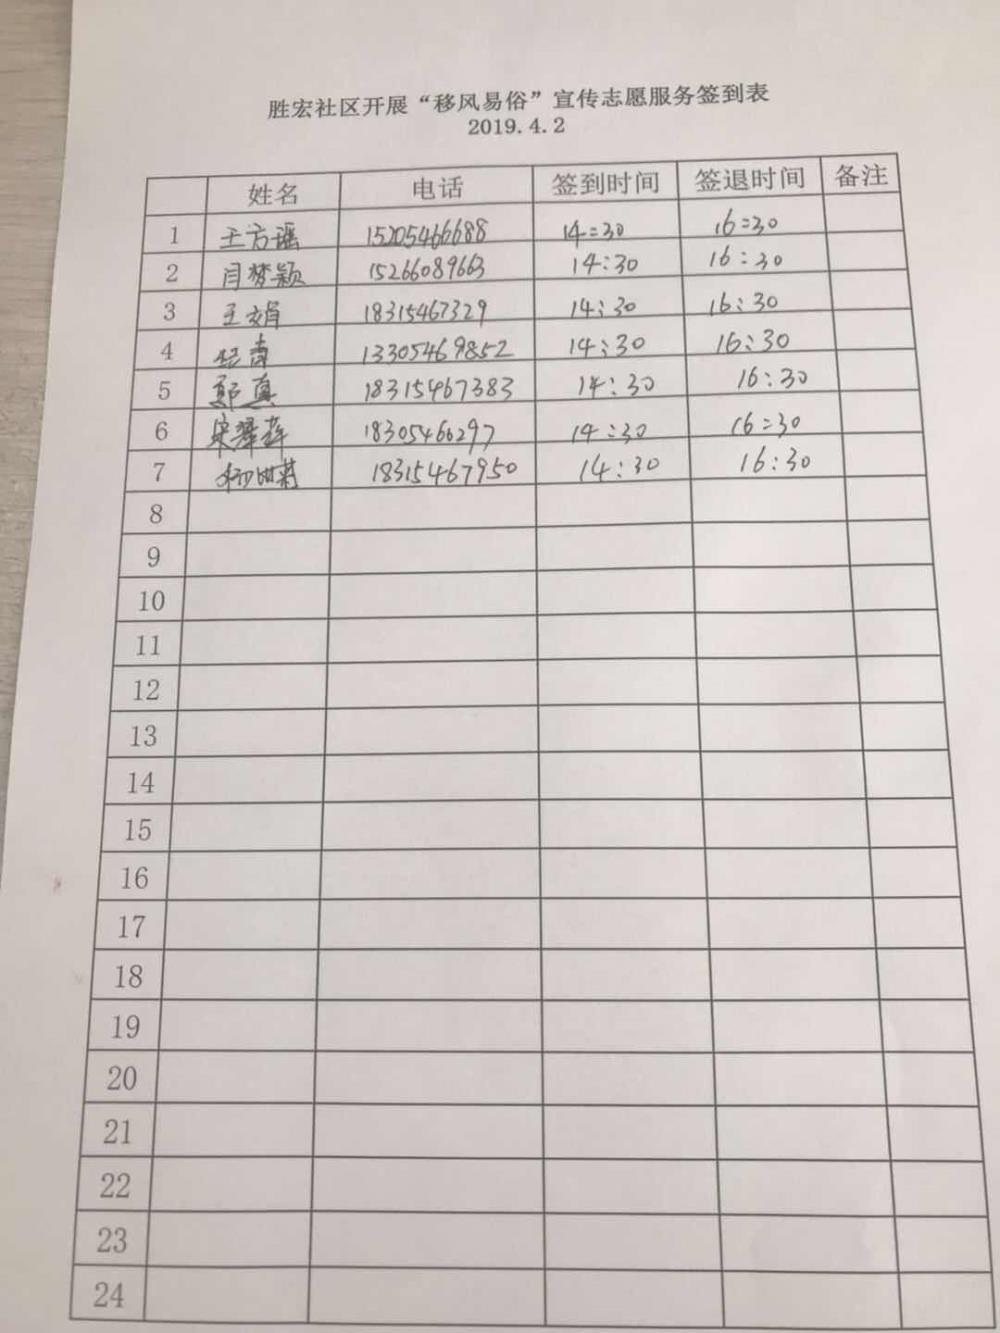 胜宏社区开展“移风易俗”宣传志愿服务签到表
2019.4.2
姓名 电话 签到时间 签退时间 备注
1 王方瑶 15205466688 14:30 16:30
2 闫梦颖 15266089663 14:30 16:30
3 王娟 18315467329 14:30 16:30
4 13305469852 14:30 16:30
5 郭真 18315467383 14:30 16:30
6 18305466297 14:30 16:30
7 18315467950 14:30 16:30
8
9
10
11
12
13
14
15
16
17
18
19
20
21
22
23
24